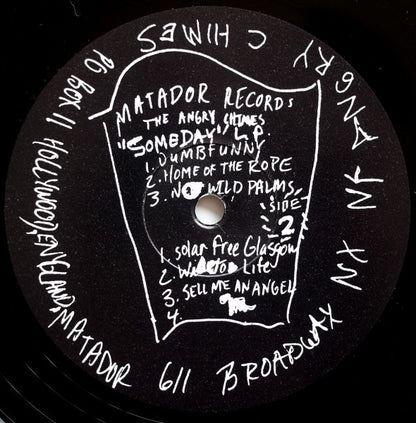 MATADOR RECORDS
THE ANGRY SHIMES
"SOMEDAY" L.P.
1. DUMBFUNNY
2. HOME OF THE ROPE
3. NOT WILD PALMS
SIDE
2
1. Solar Free Glasgow
2. Life
3. SELL ME AN ANGEL
4.
PO BOX 11 HOLLYWOOD, ENGLAND, MATADOR 611 BROADWAY NY NY ANGRY CHIMES